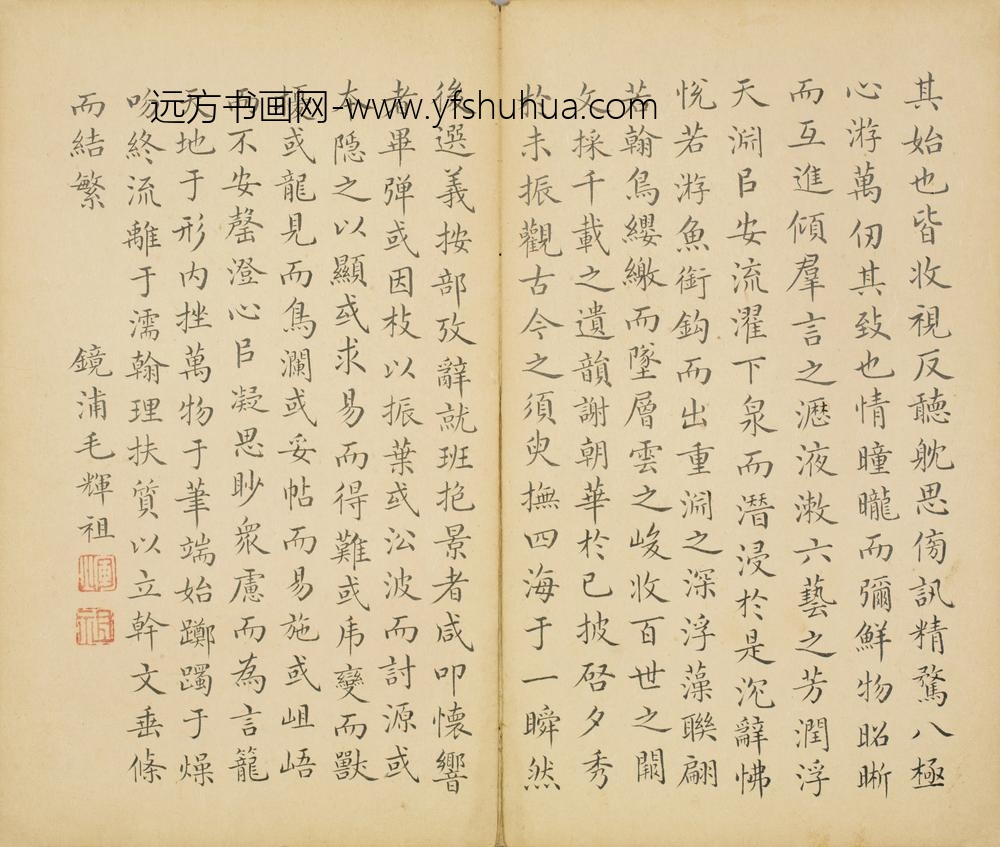 其始也皆收視反聽躭思傍訊精騖八極
心游萬仞其致也情曈曨而彌鮮物昭晣
而互進傾羣言之瀝液漱六藝之芳潤浮
天淵㠯安流濯下泉而潛浸於是沉辭怫
悅若游魚銜鉤而出重淵之深浮藻聯翩
若翰鳥纓繳而墜層雲之峻收百世之闕
文採千載之遺韻謝朝華於已披啓夕秀
於未振觀古今之須臾撫四海于一瞬然
後選義按部攷辭就班抱景者咸叩懷響
者畢彈或因枝以振葉或沿波而討源或
本隱之以顯或求易而得難或虎變而獸
擾或龍見而鳥瀾或妥帖而易施或岨峿
而不安罄澄心㠯凝思眇衆慮而為言籠
天地于形內挫萬物于筆端始躑躅于燥
吻終流離于濡翰理扶質以立幹文垂條
而結繁
鏡浦毛輝祖
远方书画网-www.yfshuhua.com